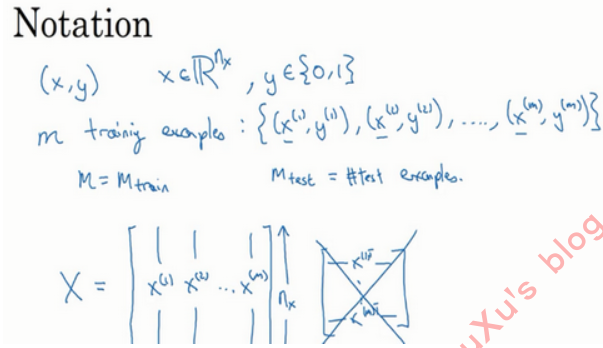 Notation
(x,y) x∈ℝ^{n_x}, y∈{0,1}
m training examples : {(x^{(1)}, y^{(1)}), (x^{(2)}, y^{(2)}), ...., (x^{(m)}, y^{(m)})}
M = M_{train} M_{test} = #test examples.
X = [x^{(1)} x^{(2)} ... x^{(m)}] n_x
x^{(1)T}
x^{(m)T}
uXu's blog